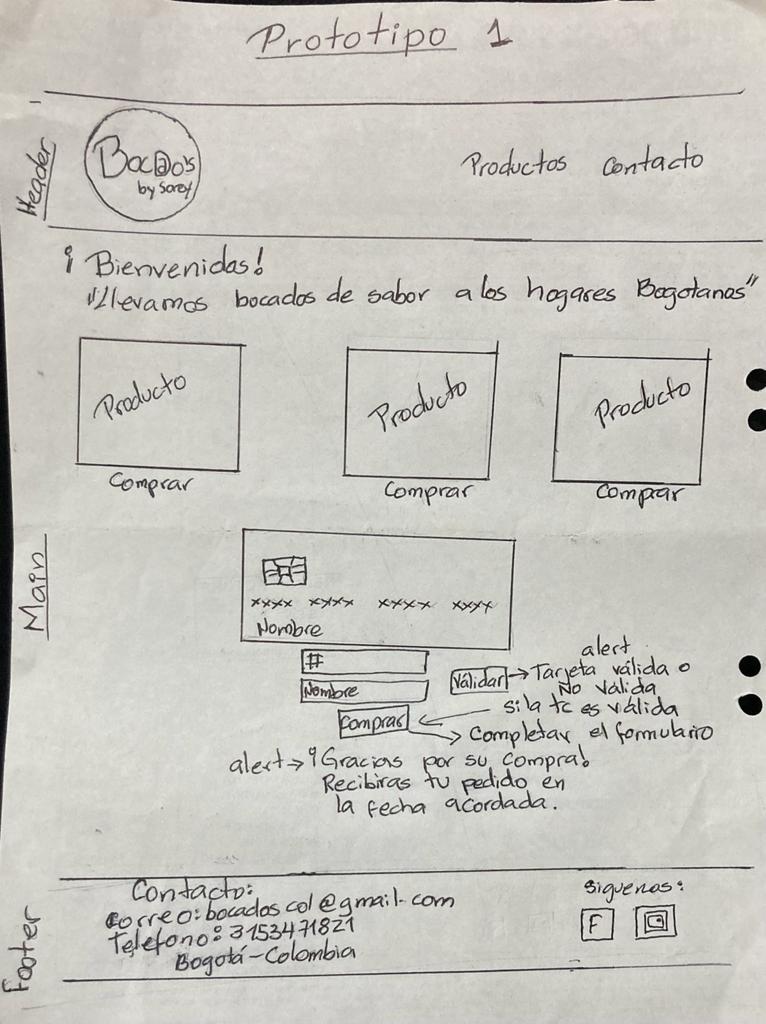 Prototipo 1
Header
Boc@o's
by Sorey
Productos Contacto
¡Bienvenidos!
"Llevamos bocados de sabor a los hogares Bogotanos"
Producto
Producto
Producto
Comprar
Comprar
Comprar
Main
xxxx xxxx xxxx xxxx
Nombre
#
Nombre
Válidar
alert
Tarjeta válida o
No válida
si la tc es válida
Comprar
Completar el formulario
alert → ¡Gracias por su compra!
Recibiras tu pedido en
la fecha acordada.
Footer
Contacto:
correo: bocados col@gmail.com
Teléfono: 3153471821
Bogotá - Colombia
Siguenos:
F